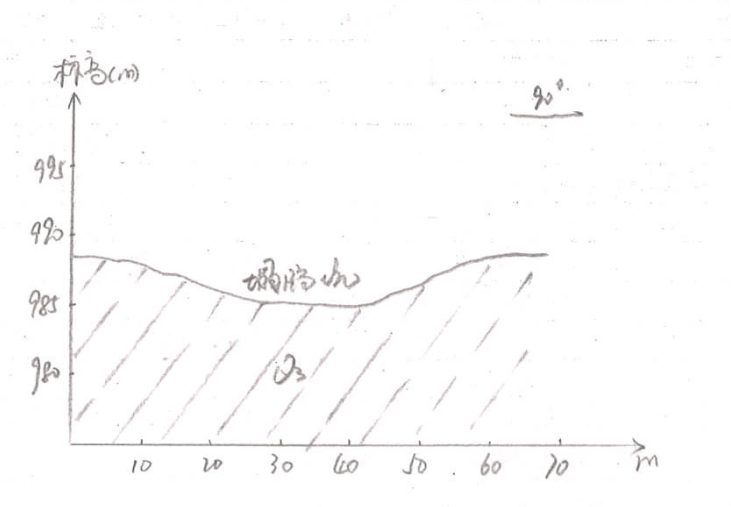 标高(m)
90°
995
990
985
980
Q₃
10 20 30 40 50 60 70 m